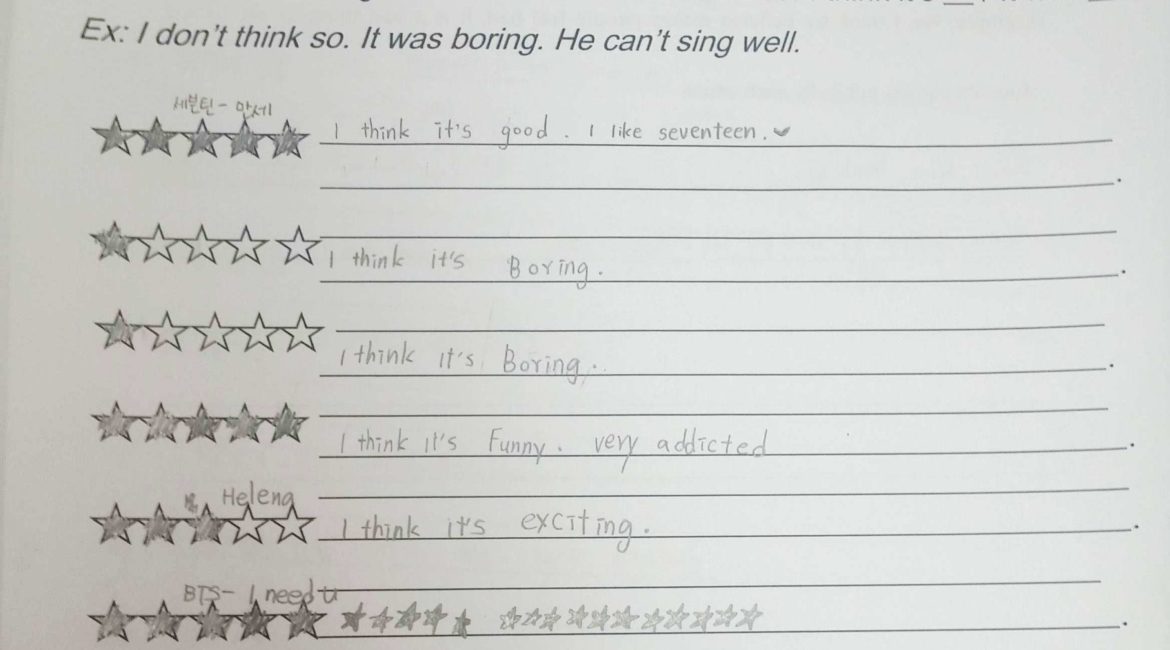 Ex: I don't think so. It was boring. He can't sing well.
세븐틴 - 만세
I think it's good. I like seventeen.
I think it's Boring.
I think it's Boring.
I think it's Funny. very addicted
Helena
I think it's exciting.
BTS- I need u